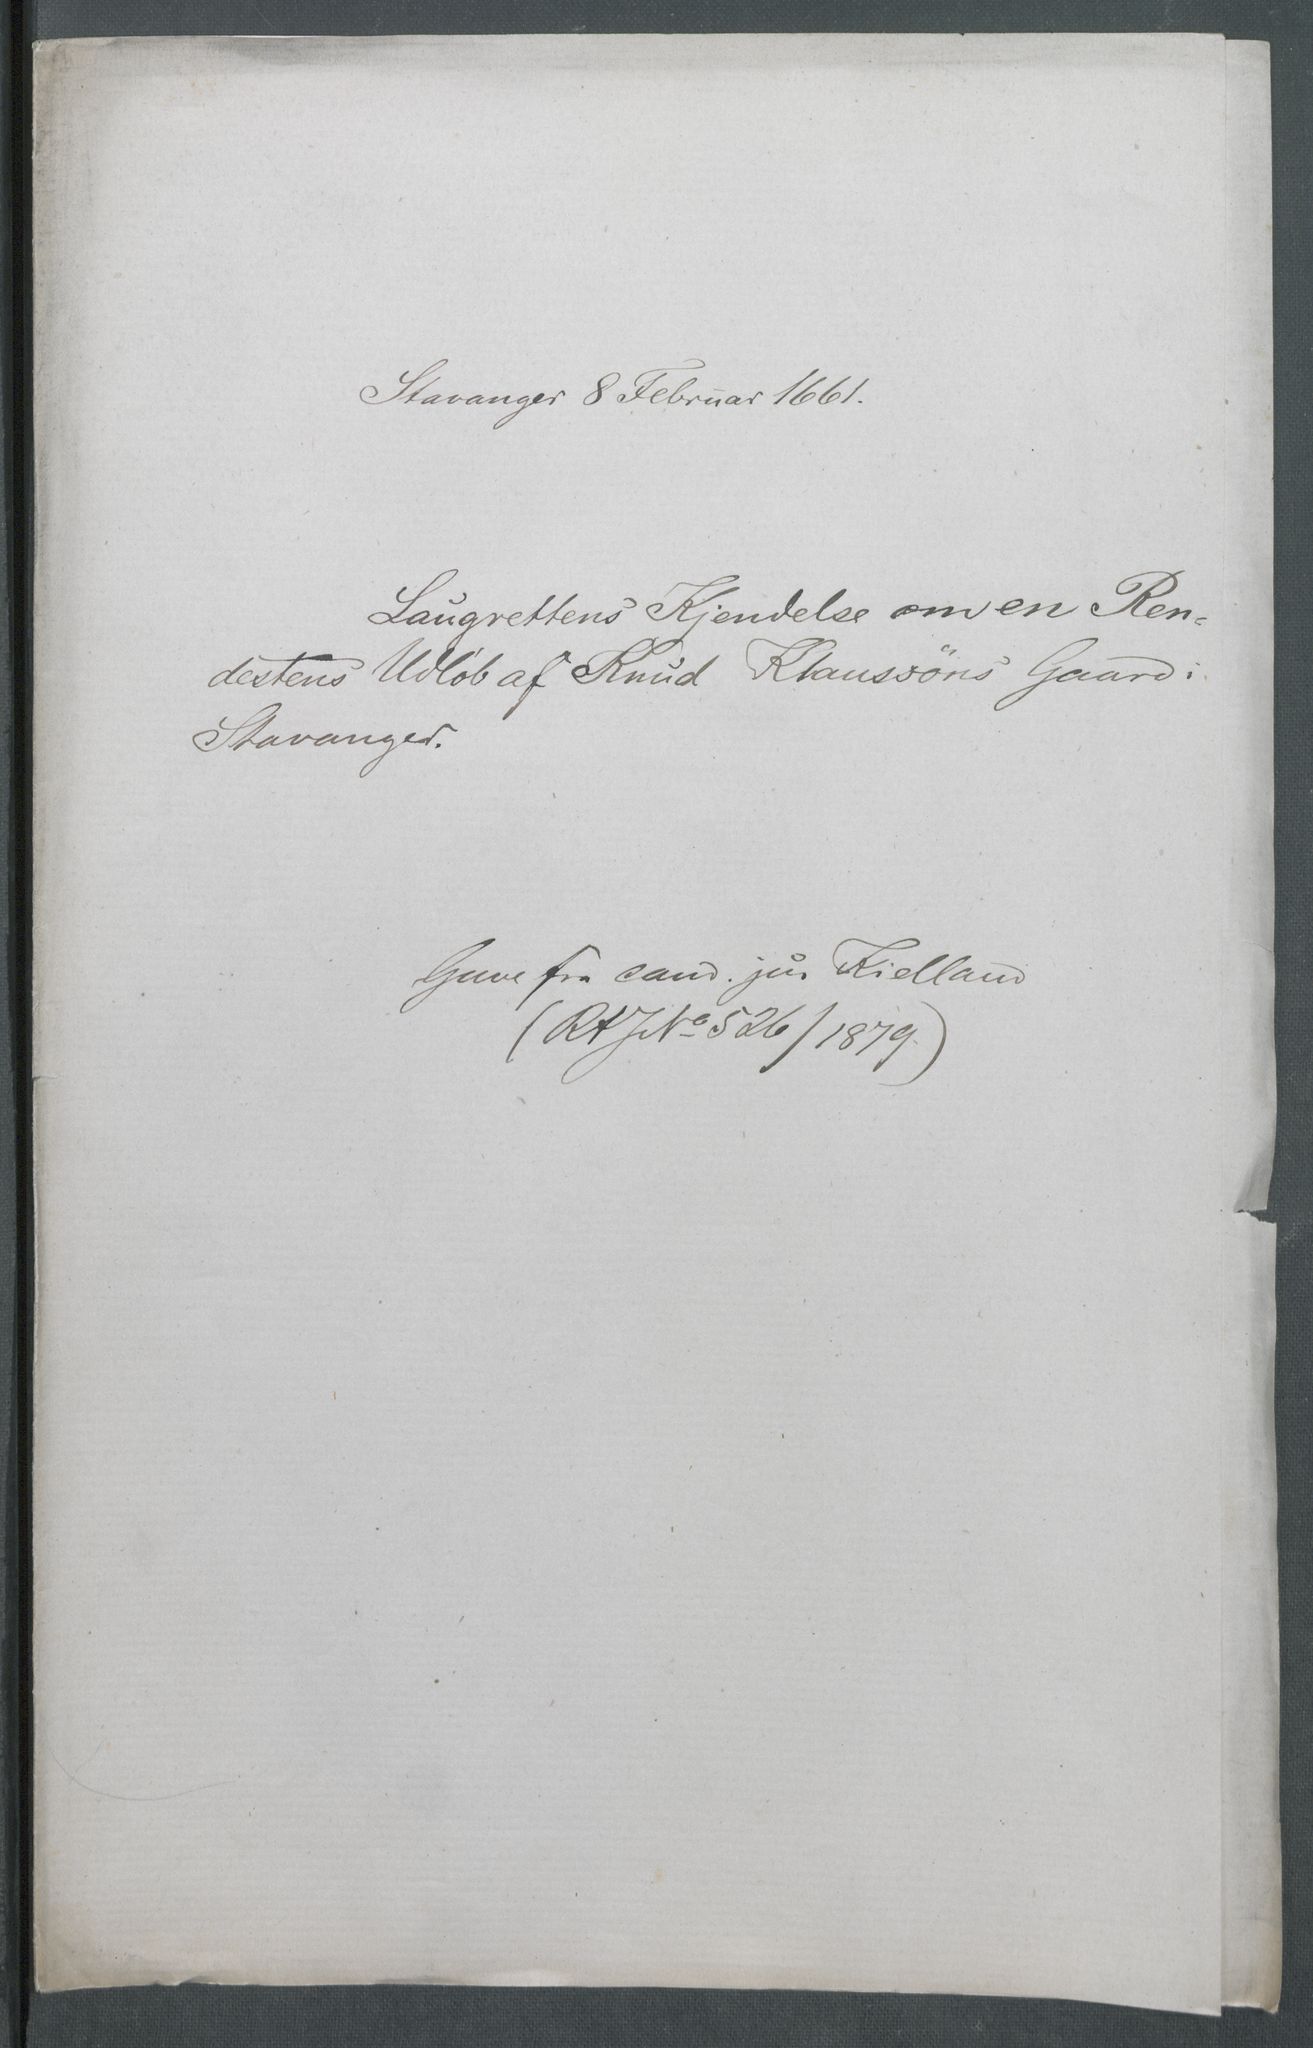 Stavanger 8 Februar 1661.
Laugrettens Kjendelse om en Ren-
destens Udlöb af Knud Klaussöns Gaard i
Stavanger.
Gave fra cand. jur Kielland
(RA J No 526/1879)